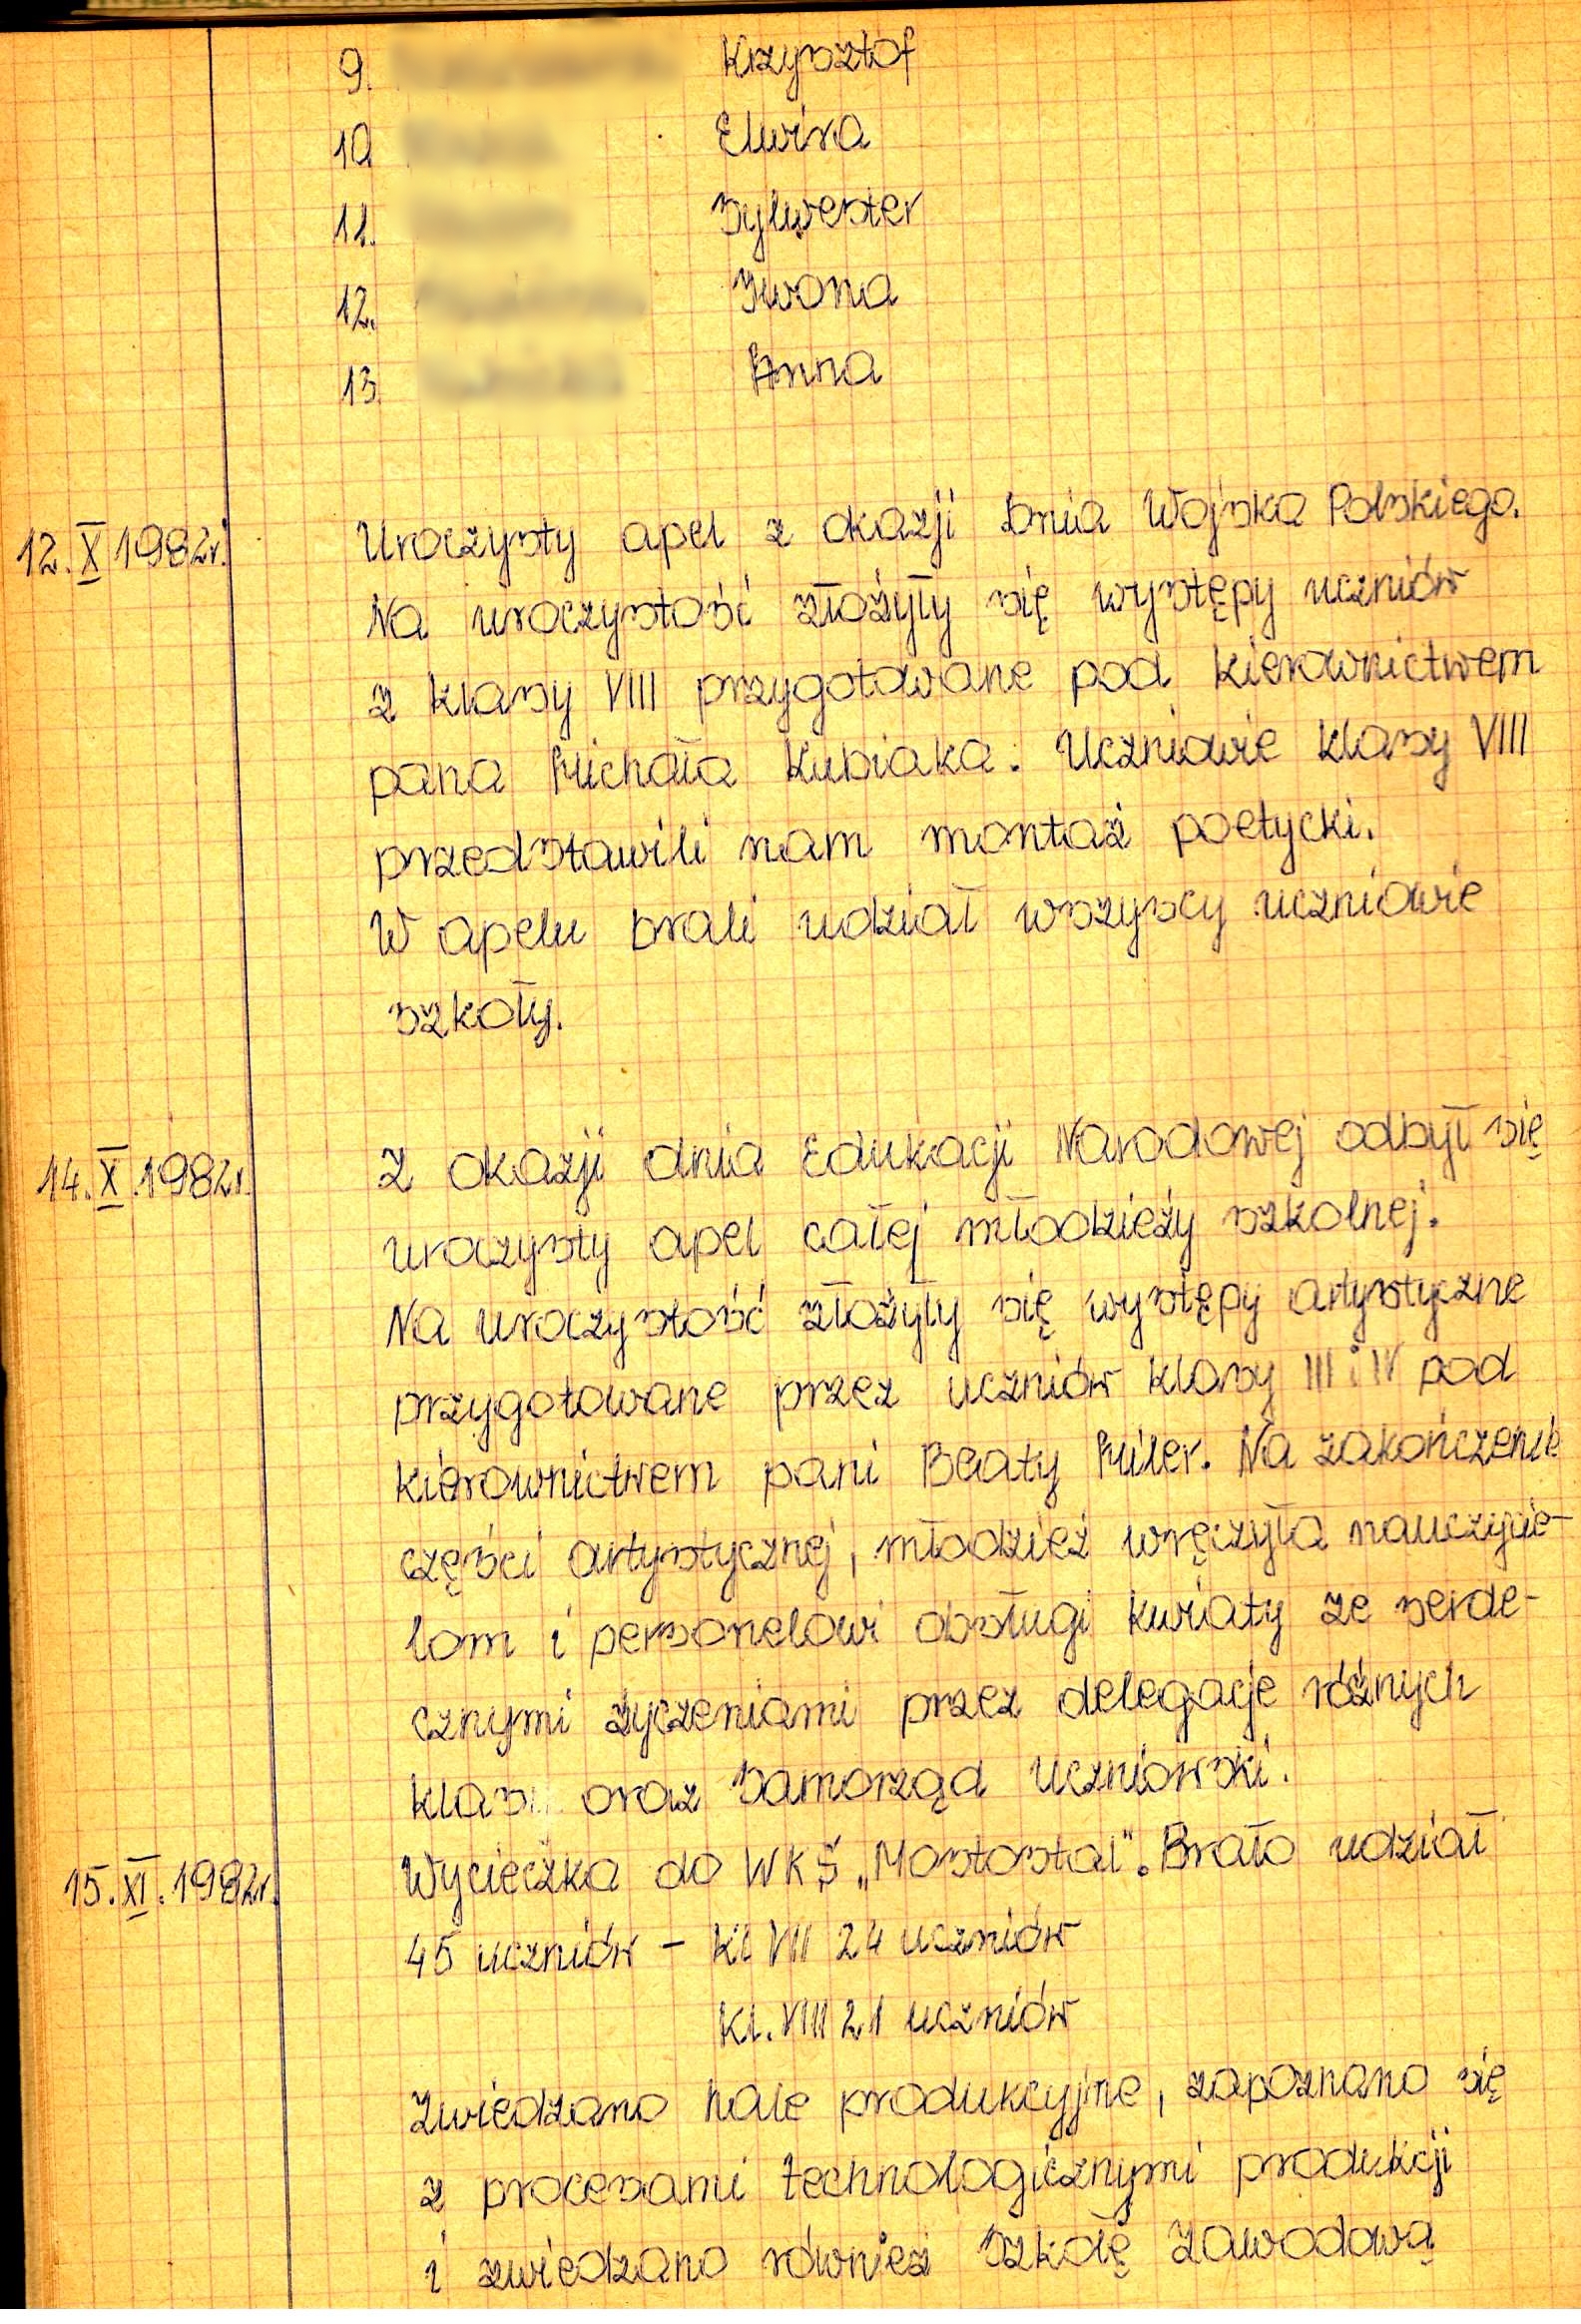 9. Krzysztof
10 Elwira
11. Sylwester
12. Iwona
13. Anna
12. X 1982r. Uroczysty apel z okazji Dnia Wojska Polskiego.
Na uroczystość złożyły się występy uczniów
z klasy VIII przygotowane pod kierownictwem
pana Michała Kubiaka. Uczniowie klasy VIII
przedstawili nam montaż poetycki.
W apelu brali udział wszyscy uczniowie
szkoły.
14. X. 1982r. Z okazji dnia Edukacji Narodowej odbył się
uroczysty apel całej młodzieży szkolnej.
Na uroczystość złożyły się występy artystyczne
przygotowane przez uczniów klasy III i IV pod
kierownictwem pani Beaty Miler. Na zakończenie
części artystycznej, młodzież wręczyła nauczycie-
lom i personelowi obsługi kwiaty ze serde-
cznymi życzeniami przez delegacje różnych
klas oraz Samorząd Uczniowski.
15. XI. 1982r. Wycieczka do WKŚ „Mostostal". Brało udział
45 uczniów - Kl VII 24 uczniów
Kl. VIII 21 uczniów
Zwiedzano hale produkcyjne, zapoznano się
z procesami technologicznymi produkcji
i zwiedzano również Szkołę Zawodową